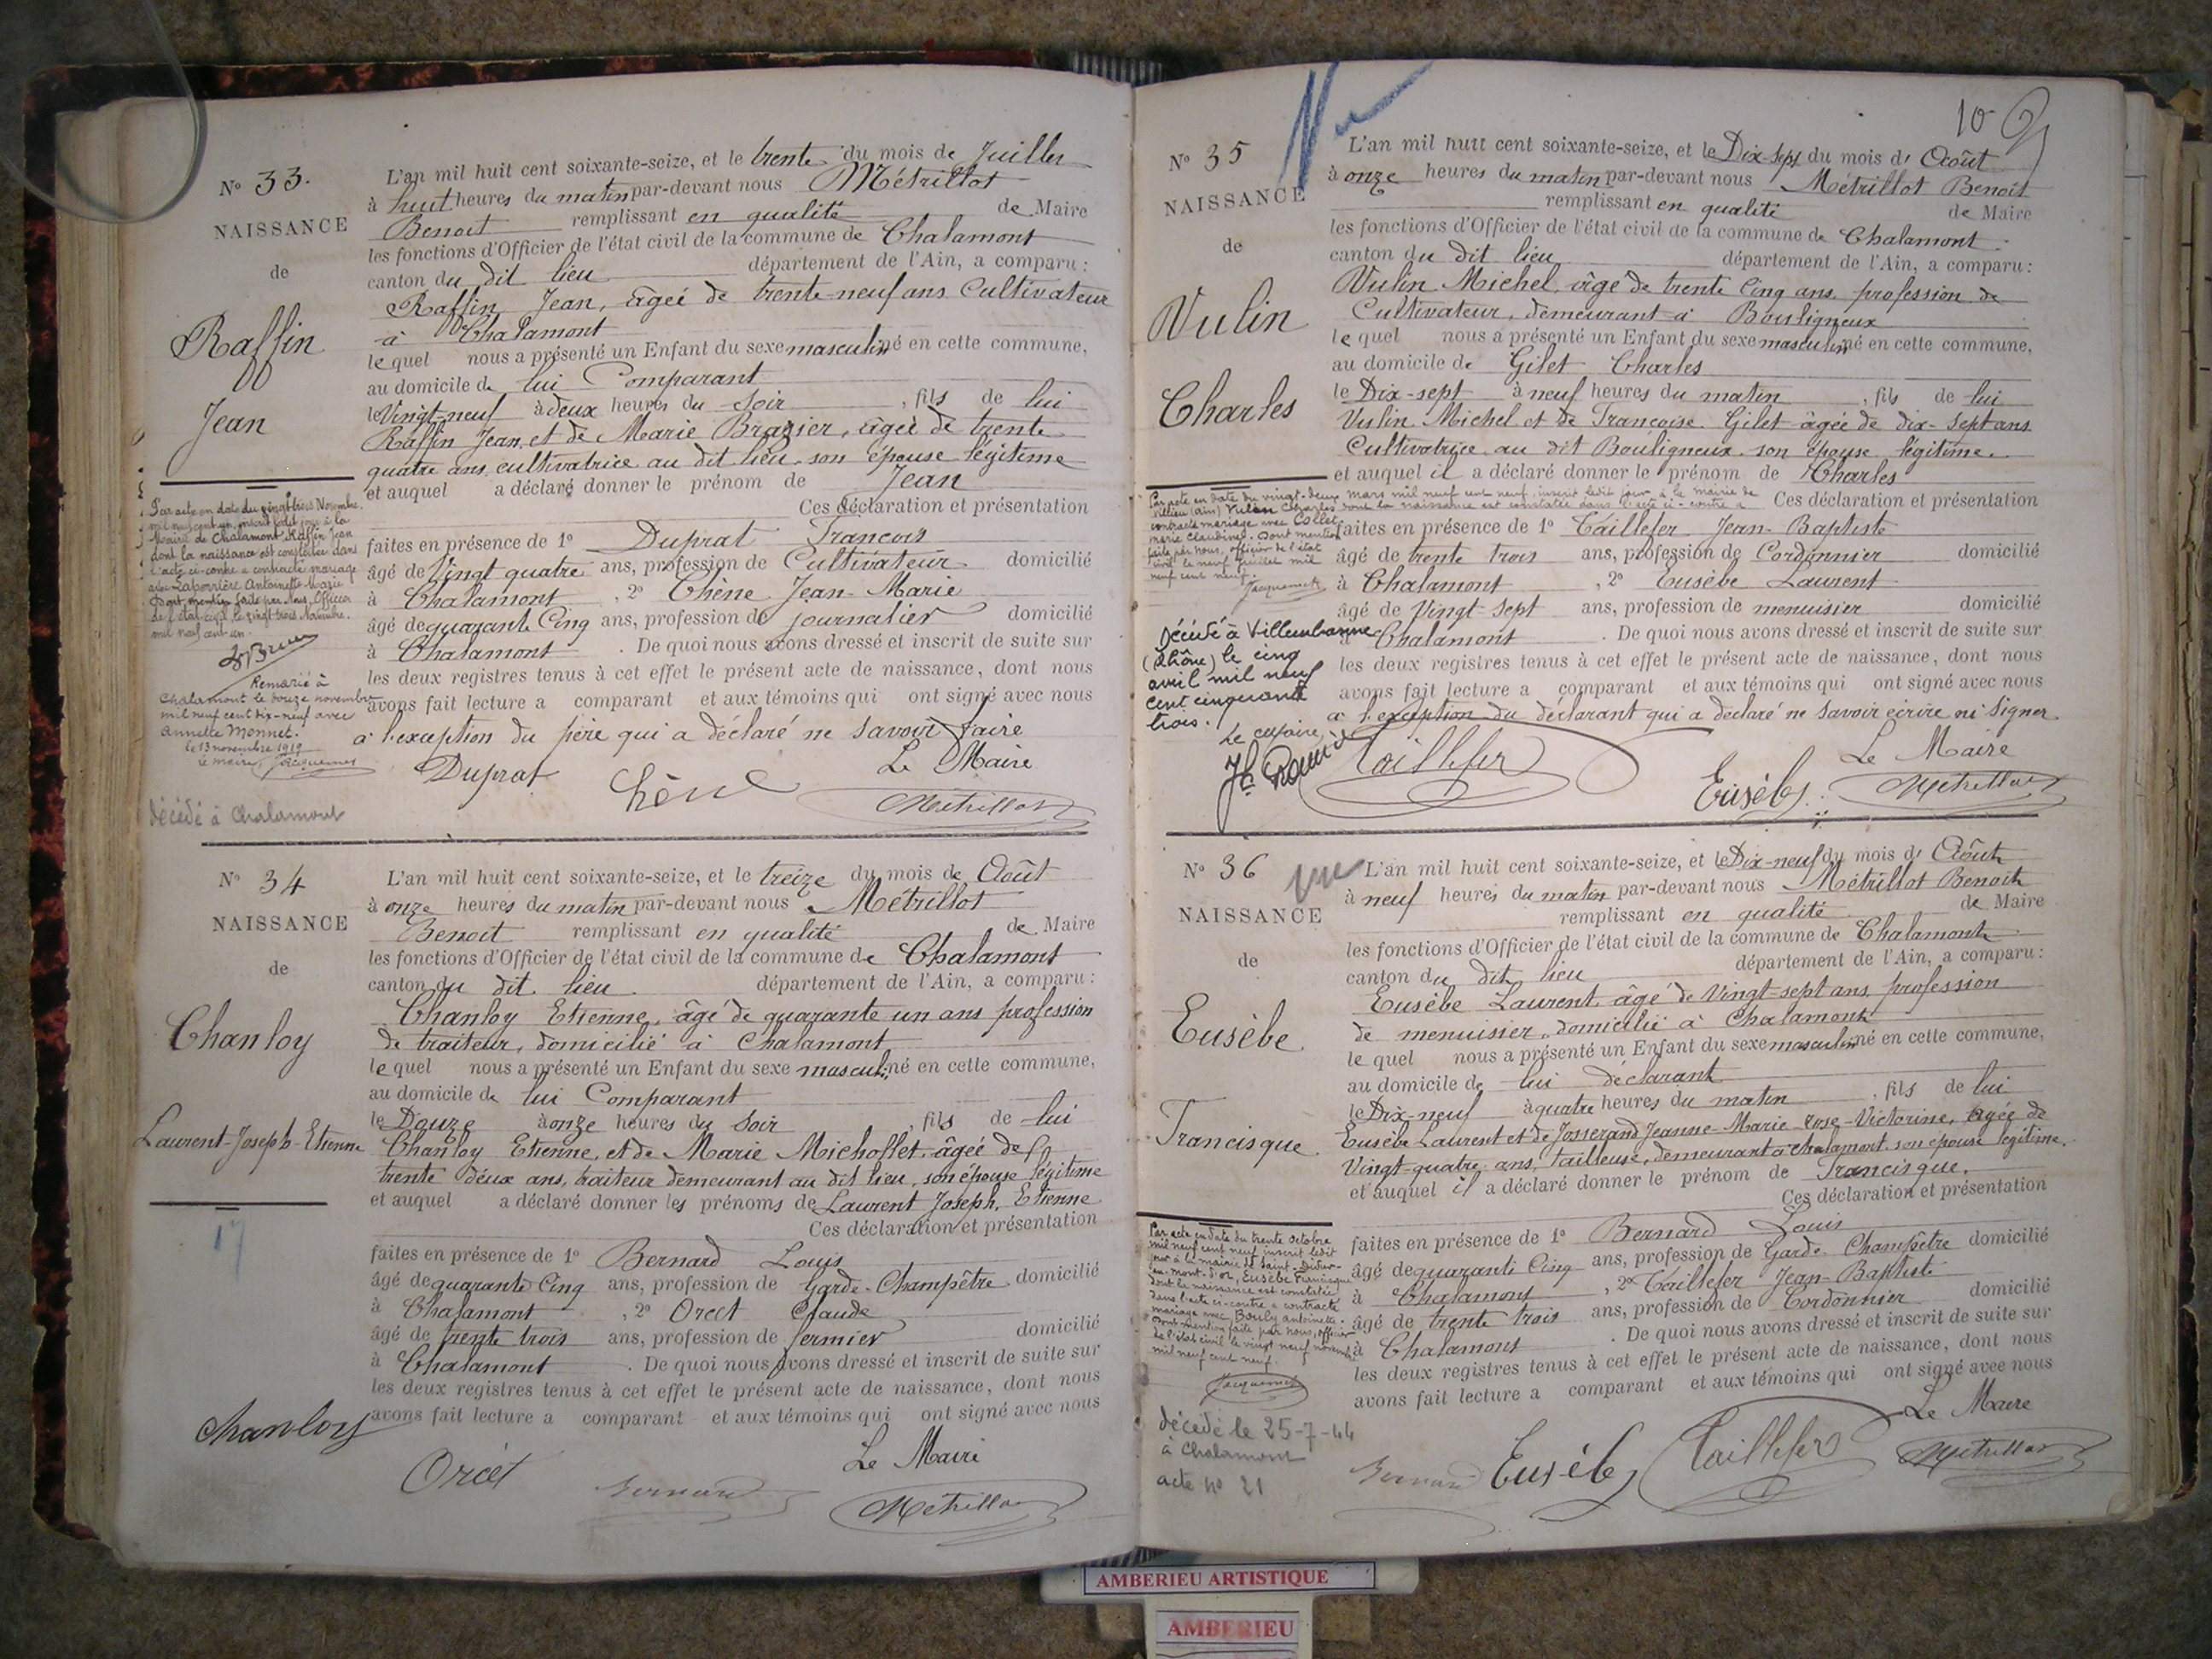 N° 33.
NAISSANCE
de
Raffin
Jean
L'an mil huit cent soixante-seize, et le trente du mois de Juillet
à huit heures du matin par-devant nous Métrillot
Benoit remplissant en qualité de Maire
les fonctions d'Officier de l'état civil de la commune de Chalamont
canton du dit lieu département de l'Ain, a comparu :
Raffin Jean, âgé de trente-neuf ans Cultivateur
à Chalamont
lequel nous a présenté un Enfant du sexe masculin né en cette commune,
au domicile de lui Comparant
le Vingt-neuf à deux heures du soir, fils de lui
Raffin Jean, et de Marie Brazier, âgée de trente
quatre ans, cultivatrice au dit lieu son épouse légitime
et auquel a déclaré donner le prénom de Jean
Ces déclaration et présentation
faites en présence de 1° Duprat François
âgé de Vingt quatre ans, profession de Cultivateur domicilié
à Chalamont, 2° Chêne Jean-Marie
âgé de quarante Cinq ans, profession de journalier domicilié
à Chalamont. De quoi nous avons dressé et inscrit de suite sur
les deux registres tenus à cet effet le présent acte de naissance, dont nous
avons fait lecture a comparant et aux témoins qui ont signé avec nous
a l'exception du père qui a déclaré ne savoir faire
Le Maire
Duprat Chêne Métrillot
Par acte en date du vingt trois Novembre
mil neuf cent un, inscrit ledit jour à la
Mairie de Chalamont Raffin Jean
dont la naissance est constatée dans
l'acte ci-contre a contracté mariage
avec Laporrière Antoinette Marie
Dont mention faite par Nous, Officier
de l'état civil le vingt trois Novembre
mil neuf cent un.
Remarié à
Chalamont le douze novembre
mil neuf cent dix-neuf avec
Annette Monnet.
le 13 novembre 1919
le maire, Jacquemet
décédé à Chalamont
N° 34
NAISSANCE
de
Chanloy
Laurent-Joseph-Etienne
17
L'an mil huit cent soixante-seize, et le treize du mois de Août
à onze heures du matin par-devant nous Métrillot
Benoit remplissant en qualité de Maire
les fonctions d'Officier de l'état civil de la commune de Chalamont
canton du dit lieu département de l'Ain, a comparu :
Chanloy Etienne, âgé de quarante un ans profession
de traiteur, domicilié à Chalamont
lequel nous a présenté un Enfant du sexe masculin né en cette commune,
au domicile de lui Comparant
le Douze à onze heures du soir, fils de lui
Chanloy Etienne, et de Marie Michollet, âgée de
trente deux ans, traiteur demeurant au dit lieu, son épouse légitime
et auquel a déclaré donner les prénoms de Laurent Joseph, Etienne
Ces déclaration et présentation
faites en présence de 1° Bernard Louis
âgé de quarante Cinq ans, profession de Garde-Champêtre domicilié
à Chalamont, 2° Orcet Claude
âgé de trente trois ans, profession de fermier domicilié
à Chalamont. De quoi nous avons dressé et inscrit de suite sur
les deux registres tenus à cet effet le présent acte de naissance, dont nous
avons fait lecture a comparant et aux témoins qui ont signé avec nous
Chanloy
Le Maire
Orcet Bernard Métrillot
10
N° 35
Vu
NAISSANCE
de
Vulin
Charles
L'an mil huit cent soixante-seize, et le Dix-sept du mois d' Août
à onze heures du matin par-devant nous Métrillot Benoit
remplissant en qualité de Maire
les fonctions d'Officier de l'état civil de la commune de Chalamont
canton du dit lieu département de l'Ain, a comparu :
Vulin Michel, âgé de trente Cinq ans, profession de
Cultivateur, demeurant à Bouligneux
lequel nous a présenté un Enfant du sexe masculin né en cette commune,
au domicile de Gilet Charles
le Dix-sept à neuf heures du matin, fils de lui
Vulin Michel et de Françoise Gilet âgée de dix-sept ans
Cultivatrice au dit Bouligneux son épouse légitime.
et auquel il a déclaré donner le prénom de Charles
Ces déclaration et présentation
faites en présence de 1° Taillefer Jean-Baptiste
âgé de trente trois ans, profession de Cordonnier domicilié
à Chalamont, 2° Eusèbe Laurent
âgé de Vingt-sept ans, profession de menuisier domicilié
Chalamont. De quoi nous avons dressé et inscrit de suite sur
les deux registres tenus à cet effet le présent acte de naissance, dont nous
avons fait lecture a comparant et aux témoins qui ont signé avec nous
a l'exception du déclarant qui a déclaré ne savoir écrire ni signer
Le Maire
Taillefer Eusèbe Métrillot
Par acte en date du vingt-deux mars mil neuf cent neuf, inscrit ledit jour à la mairie de
Villieu (Ain) Vulin Charles dont la naissance est constatée dans l'acte ci-contre a
contracté mariage avec Collet
Marie Claudine. Dont mention
faite par nous, officier de l'état
civil le neuf juillet mil
neuf cent neuf.
Jacquemet
Décédé à Villeurbanne
(Rhône) le cinq
avril mil neuf
cent cinquante
trois.
N° 36
vu
NAISSANCE
de
Eusèbe
Francisque
L'an mil huit cent soixante-seize, et le Dix-neuf du mois d' Août
à neuf heures du matin par-devant nous Métrillot Benoit
remplissant en qualité de Maire
les fonctions d'Officier de l'état civil de la commune de Chalamont
canton du dit lieu département de l'Ain, a comparu :
Eusèbe Laurent, âgé de Vingt-sept ans profession
de menuisier, domicilié à Chalamont
lequel nous a présenté un Enfant du sexe masculin né en cette commune,
au domicile de lui déclarant
le Dix-neuf à quatre heures du matin, fils de lui
Eusèbe Laurent et de Josserand Jeanne-Marie-Rose-Victorine, âgée de
Vingt-quatre ans, tailleuse, demeurant à Chalamont son épouse légitime.
et auquel il a déclaré donner le prénom de Francisque.
Ces déclaration et présentation
faites en présence de 1° Bernard Louis
âgé de quarante Cinq ans, profession de Garde Champêtre domicilié
à Chalamont, 2° Taillefer Jean-Baptiste
âgé de trente trois ans, profession de Cordonnier domicilié
à Chalamont. De quoi nous avons dressé et inscrit de suite sur
les deux registres tenus à cet effet le présent acte de naissance, dont nous
avons fait lecture a comparant et aux témoins qui ont signé avec nous
Le Maire
Bernard Eusèbe Taillefer Métrillot
Par acte en date du trente octobre
mil neuf cent neuf inscrit ledit
jour à la mairie de Saint-Didier-
au-mont-d'or, Eusèbe Francisque
dont la naissance est constatée
dans l'acte ci-contre a contracté
mariage avec Bouly Antoinette.
Dont mention faite par nous, officier
de l'état civil le vingt neuf novembre
mil neuf cent neuf.
Jacquemet
décédé le 25-7-44
à Chalamont
acte n° 21
AMBERIEU ARTISTIQUE
AMBERIEU